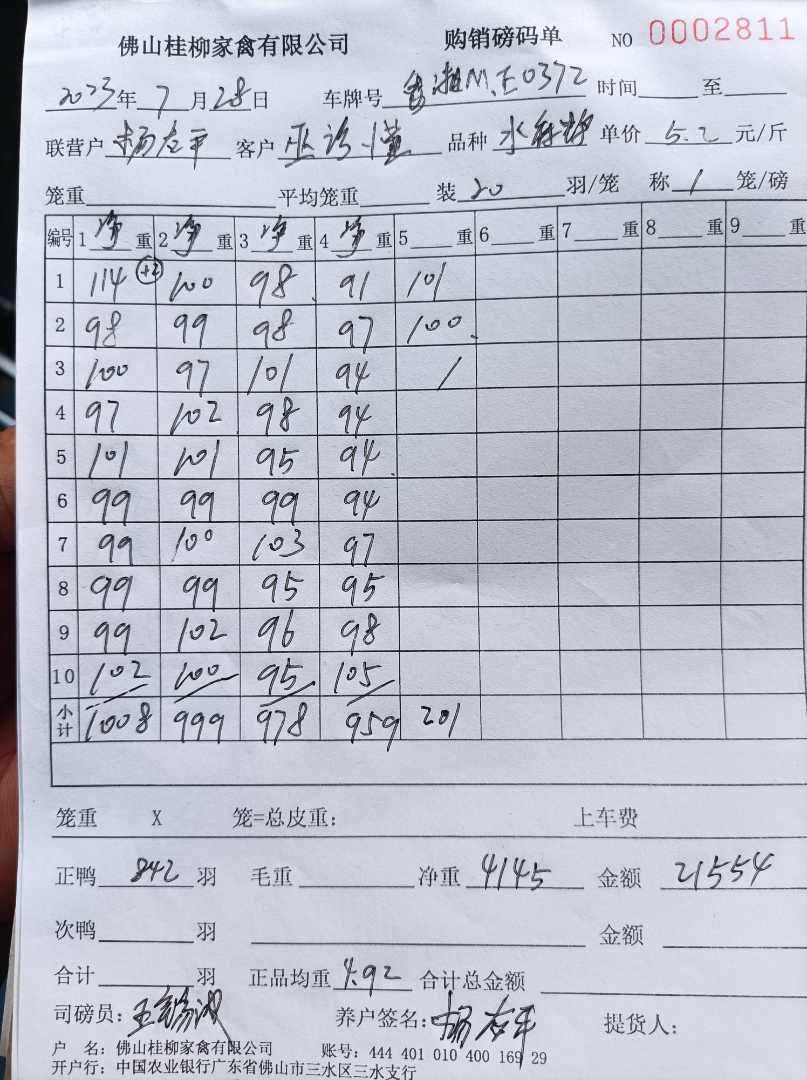 佛山桂柳家禽有限公司 购销磅码单 NO 0002811
2023年 7 月 28 日 车牌号 湘M.E0372 时间 至
联营户 杨志平 客户 品种 水 单价 5.2 元/斤
笼重 平均笼重 装 20 羽/笼 称 1 笼/磅
编号 1 净 重 2 净 重 3 净 重 4 净 重 5 重 6 重 7 重 8 重 9 重
1 114 +2 100 98 91 101
2 98 99 98 97 100
3 100 97 101 94 /
4 97 102 98 94
5 101 101 95 94
6 99 99 99 94
7 99 100 103 97
8 99 99 95 95
9 99 102 96 98
10 102 100 95 105
小计 1008 999 978 959 201
笼重 X 笼=总皮重： 上车费
正鸭 842 羽 毛重 净重 4145 金额 21554
次鸭 羽 金额
合计 羽 正品均重 4.92 合计总金额
司磅员： 王 养户签名： 杨志平 提货人：
户 名：佛山桂柳家禽有限公司 账号：444 401 010 400 169 29
开户行：中国农业银行广东省佛山市三水区三水支行